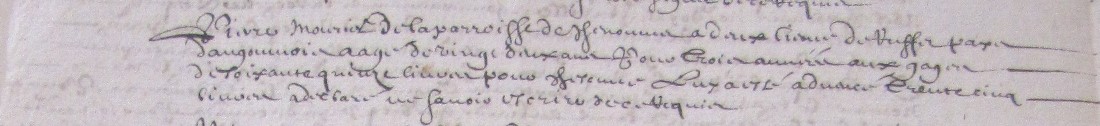 Pierre Mounier de la parroisse de Chenomme a deux lieues de Ruffec pays
dangoumois aage de vingt deux ans pour trois années aux gages
de soixante quinze livres pour chacune luy a esté advancé trente cinq
livres a declaré ne scavoir escrire de ce requis